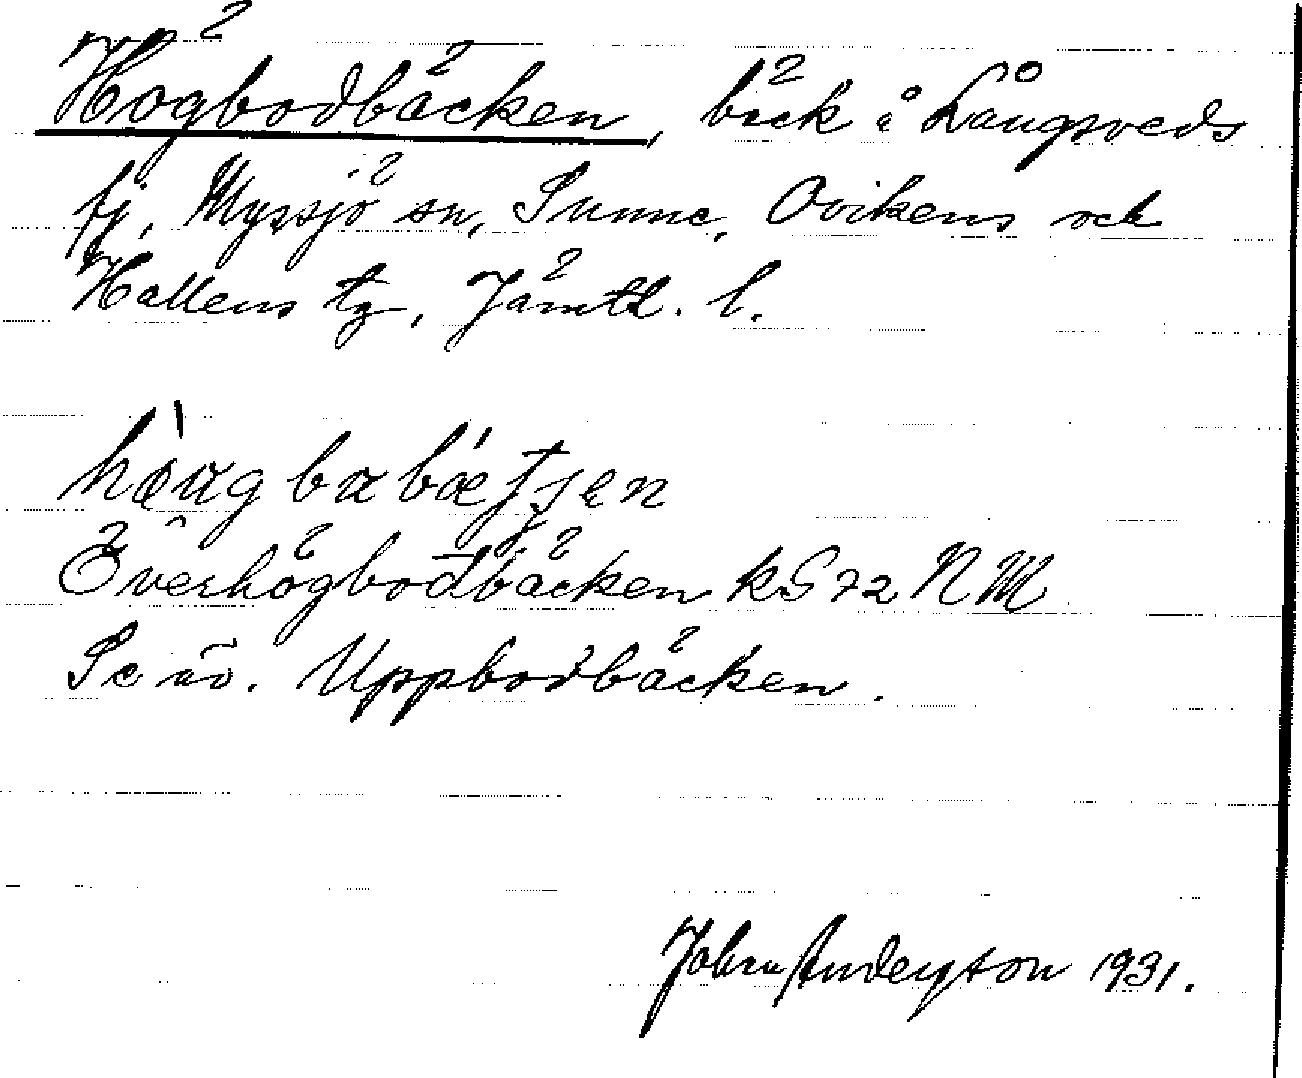 Högbodbäcken, bäck å Långsveds
fj, Myssjö sn, Sunne, Ovikens och
Hallens tg, Jämtl. l.
Överhögbodbäcken KS 72 NM
Se äv. Uppbodbäcken.
John Anderson 1931.